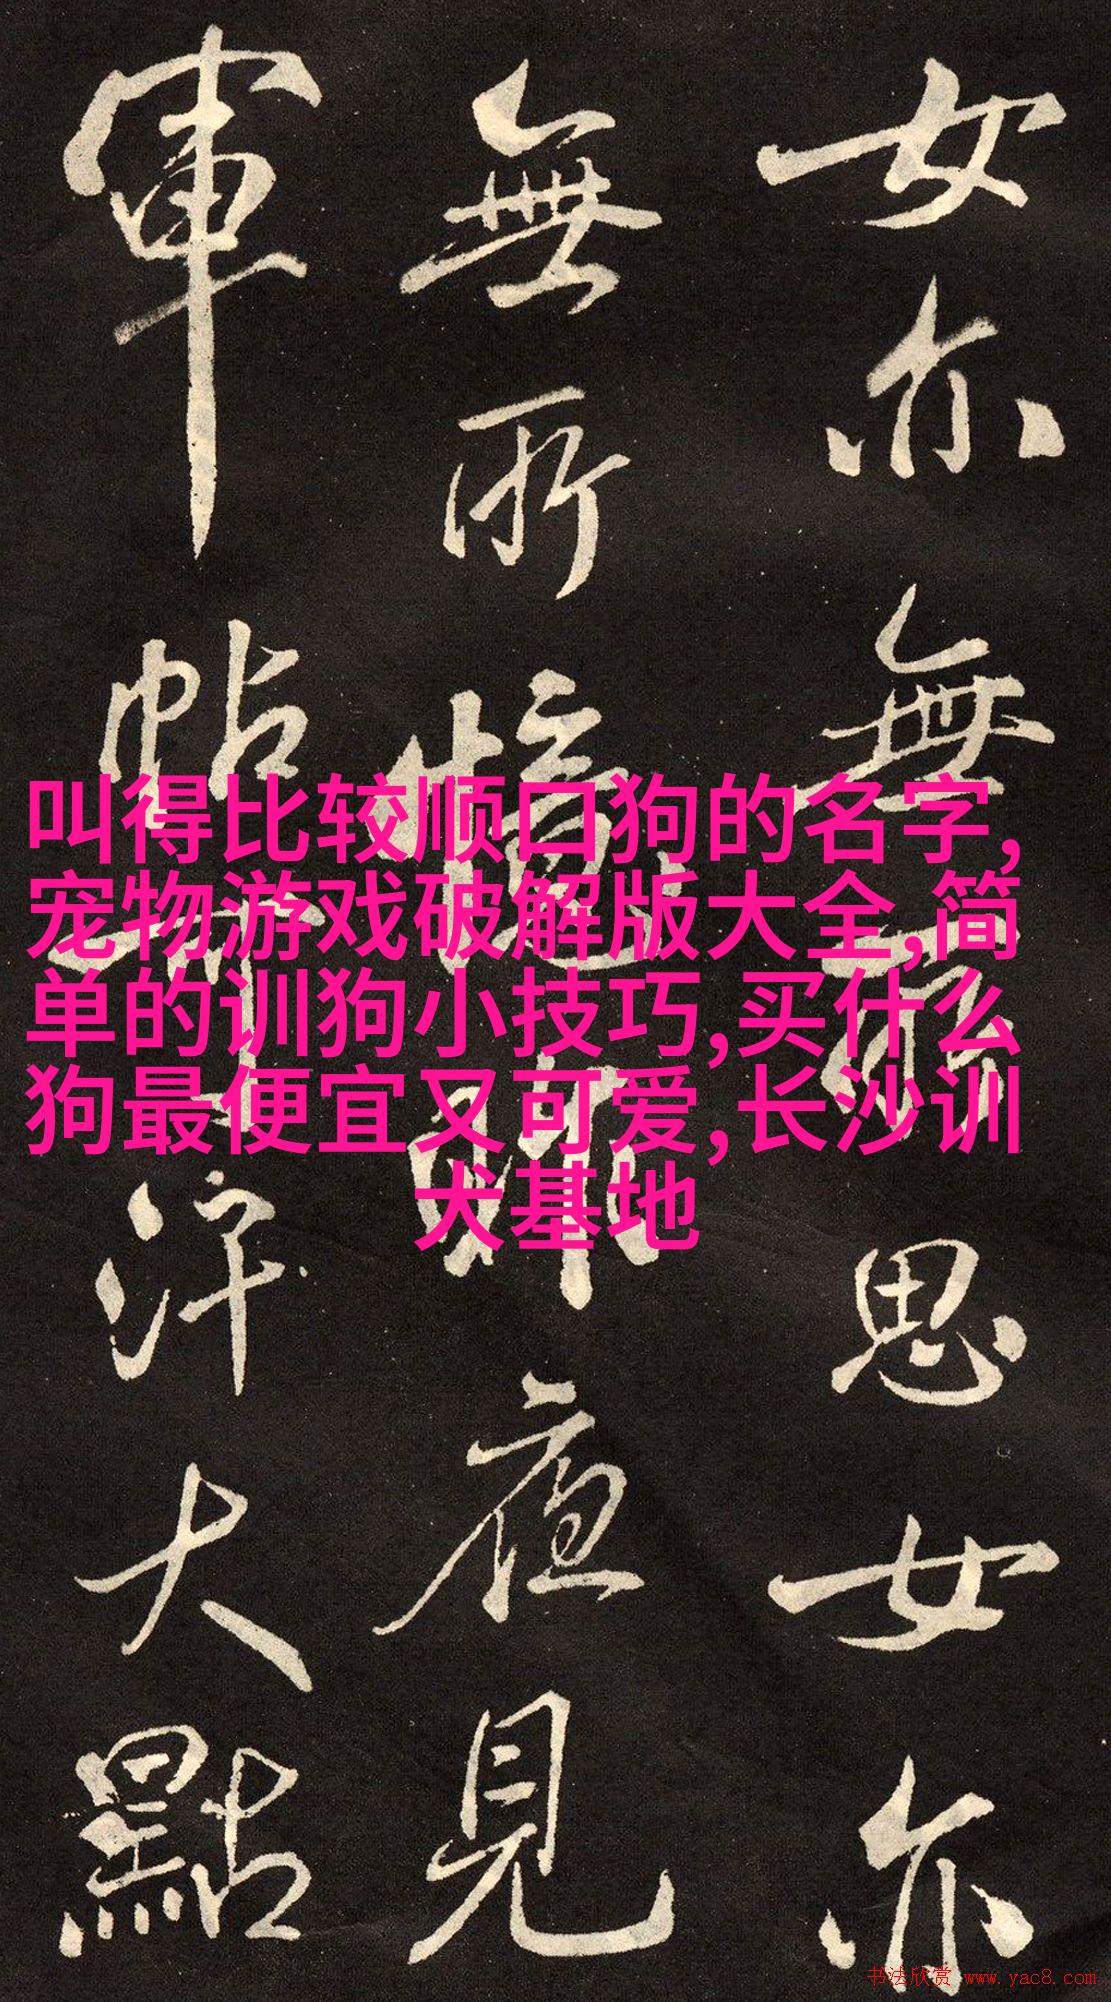 叫得比较顺口狗的名字,
宠物游戏破解版大全,简
单的训狗小技巧,买什么
狗最便宜又可爱,长沙训
犬基地
女亦無所思女亦
無所憶昨夜見
軍帖可汗大點
书法欣赏 www.yac8.com